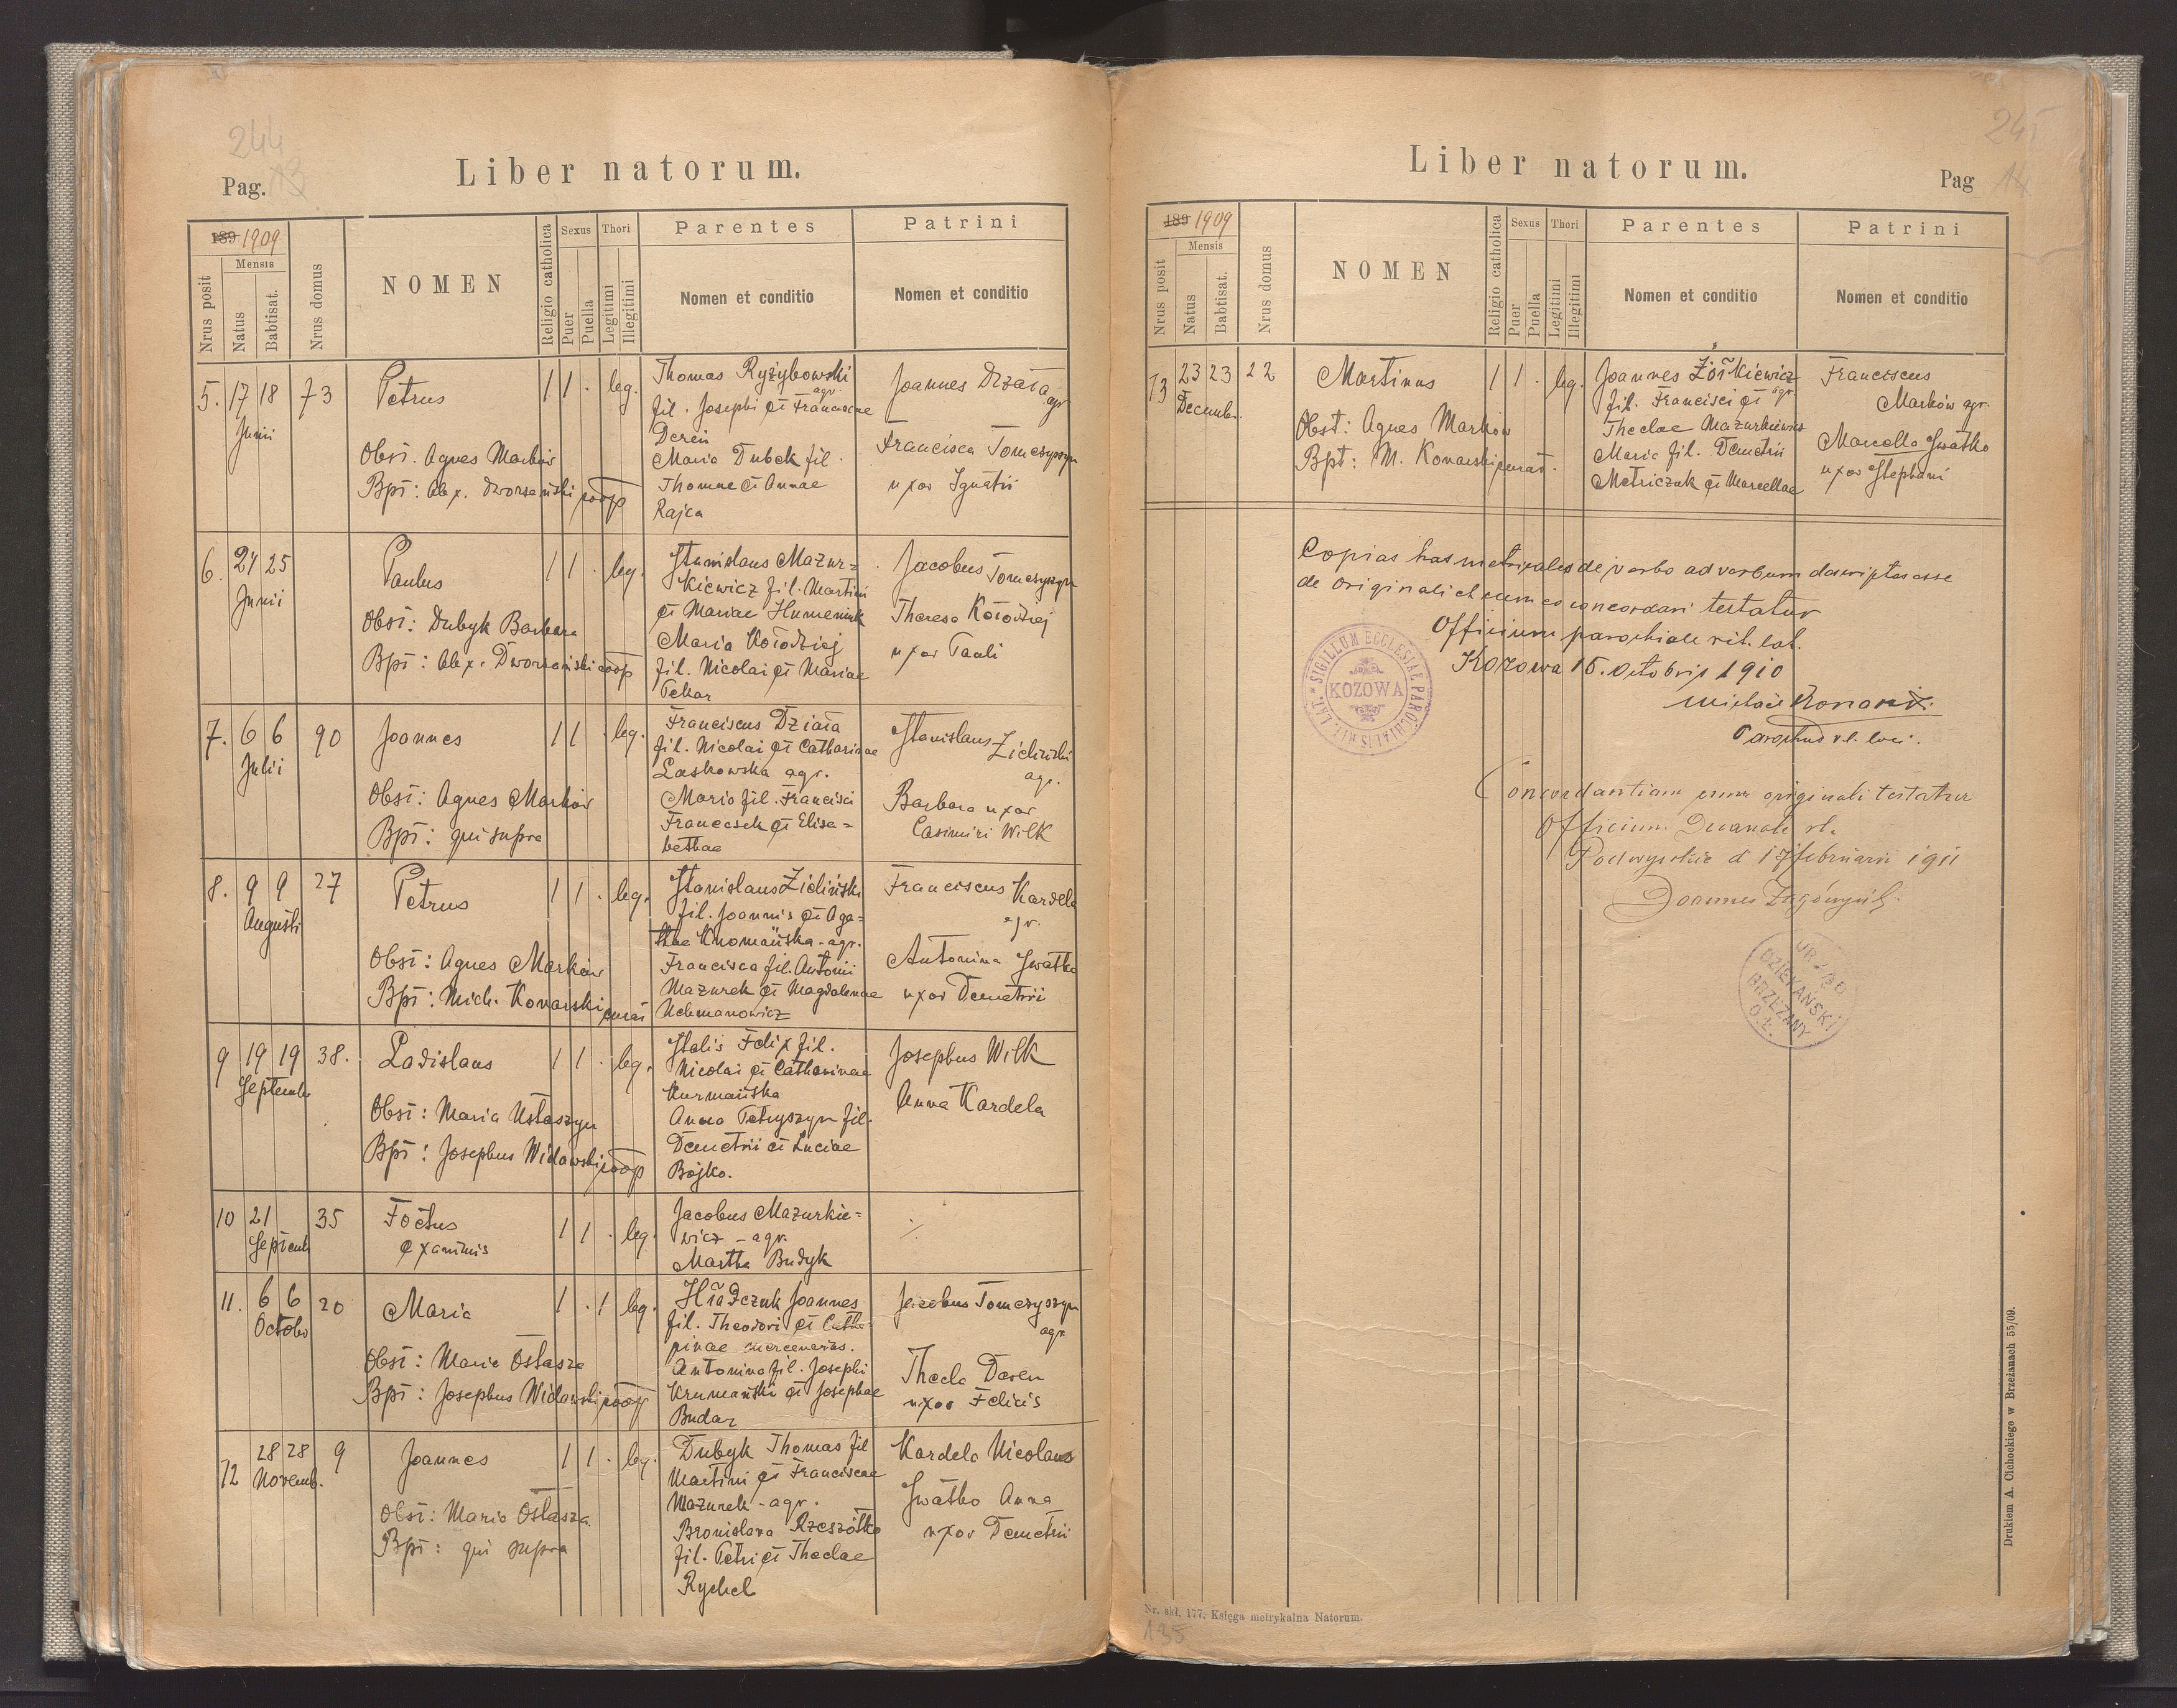 244
Pag. 13
Liber natorum.
189 1909
Mensis
Nrus posit
Natus
Babtisat.
Nrus domus
NOMEN
Religio catholica
Sexus
Puer
Puella
Thori
Legitimi
Illegitimi
Parentes
Nomen et conditio
Patrini
Nomen et conditio
5. 17 18 73 Petrus 1 1 . leg.
Junii
Obst. Agnes Marków
Bpt: Alex. Dworzański coop
Thomas Ryżybowski
agr
fil. Josephi et Franciscae
Dereń
Maria Dubek fil.
Thomae et Annae
Rajca
Joannes Działa agr
Francisca Tomczyszyn
uxor Ignatii
6. 24 25 Paulus 1 1 . leg.
Junii
Obst: Dubyk Barbara
Bpt: Alex. Dworzański coop
Stanislaus Mazur=
kiewicz fil. Martini
et Mariae Humeniuk
Maria Kołodziej
fil. Nicolai et Mariae
Pekar
Jacobus Tomczyszyn
Theresa Kołodziej
uxor Pauli
7. 6 6 90 Joannes 1 1 . leg.
Julii
Obst: Agnes Marków
Bpt: qui supra
Franciscus Działa
fil. Nicolai et Catharinae
Laskowska agr.
Maria fil. Francisci
Franczek et Elisa=
bethae
Stanislaus Zieliński
agr.
Barbara uxor
Casimiri Wilk
8. 9 9 27 Petrus 1 1 . leg.
Augusti
Obst: Agnes Marków
Bpt: Mich. Konarski curat
Stanislaus Zieliński
fil. Joannis et Aga=
thae Knomańska - agr.
Francisca fil. Antonii
Mazurek et Magdalenae
Uchmanowicz
Franciscus Kardela
agr.
Antonina Swatko
uxor Demetrii
9 19 19 38. Ladislaus 1 1 . leg.
Septembr
Obst: Maria Ustaszyn
Bpt: Josephus Widawski coop
Stalis Felix fil.
Nicolai et Catharinae
Kurmańska
Anna Petryszyn fil.
Demetrii et Luciae
Bojko.
Josephus Wilk
Anna Kardela
10 21 35 Foetus 1 1 . leg.
Septemb
exanimis
Jacobus Mazurkie=
wicz - agr.
Martha Budyk
./.
11. 6 6 20 Maria 1 . 1 leg.
Octobr
Obst: Maria Ostasza
Bpt: Josephus Widawski coop
Hładczuk Joannes
fil. Theodori et Catha
rinae mercenarius.
Antonina fil. Josephi
Krumański et Josephae
Budar
Jacobus Tomczyszyn
agr.
Thecla Deren
uxor Felicis
12 28 28 9 Joannes 1 1 . leg.
Novemb.
Obst: Maria Ostasza
Bpt: qui supra
Dubyk Thomas fil
Martini et Franciscae
Mazurek - agr.
Bronislava Rzeszótko
fil. Petri et Theclae
Rychel
Kardela Nicolaus
Swatko Anna
uxor Demetrii
245
Pag 14
Liber natorum.
189 1909
Mensis
Nrus posit
Natus
Babtisat.
Nrus domus
NOMEN
Religio catholica
Sexus
Puer
Puella
Thori
Legitimi
Illegitimi
Parentes
Nomen et conditio
Patrini
Nomen et conditio
13 23 23 22 Martinus 1 1 . leg.
Decembr.
Obst: Agnes Marków
Bpt: M. Konarski curat.
Joannes Żółkiewicz
agr.
fil. Francisci et
Theclae Mazurkiewicz
Maria fil. Demetrii
Metriczuk et Marcellae
Franciscus
Marków agr.
Marcella Swatko
uxor Stephani
Copias has metricales de verbo ad verbum descriptas esse
de originali et cum eo concordari testatur
Officium parochiale rit. lat.
Kozowa 15. Octobris 1910
Michael Konarski
Parochus r.l. loci.
SIGILLUM ECCLESIAE PAROCHIALIS RIT. LAT.
KOZOWA
Concordantiam cum originali testatur
Officium Decanale r.l.
Podwysokie d 17 februarii 1911
Joannes
URZĄD
DZIEKAŃSKI
BRZEŻANY
O. Ł.
Drukiem A. Cichockiego w Brzeżanach 55/09.
Nr. skł. 177. Księga metrykalna Natorum.
135